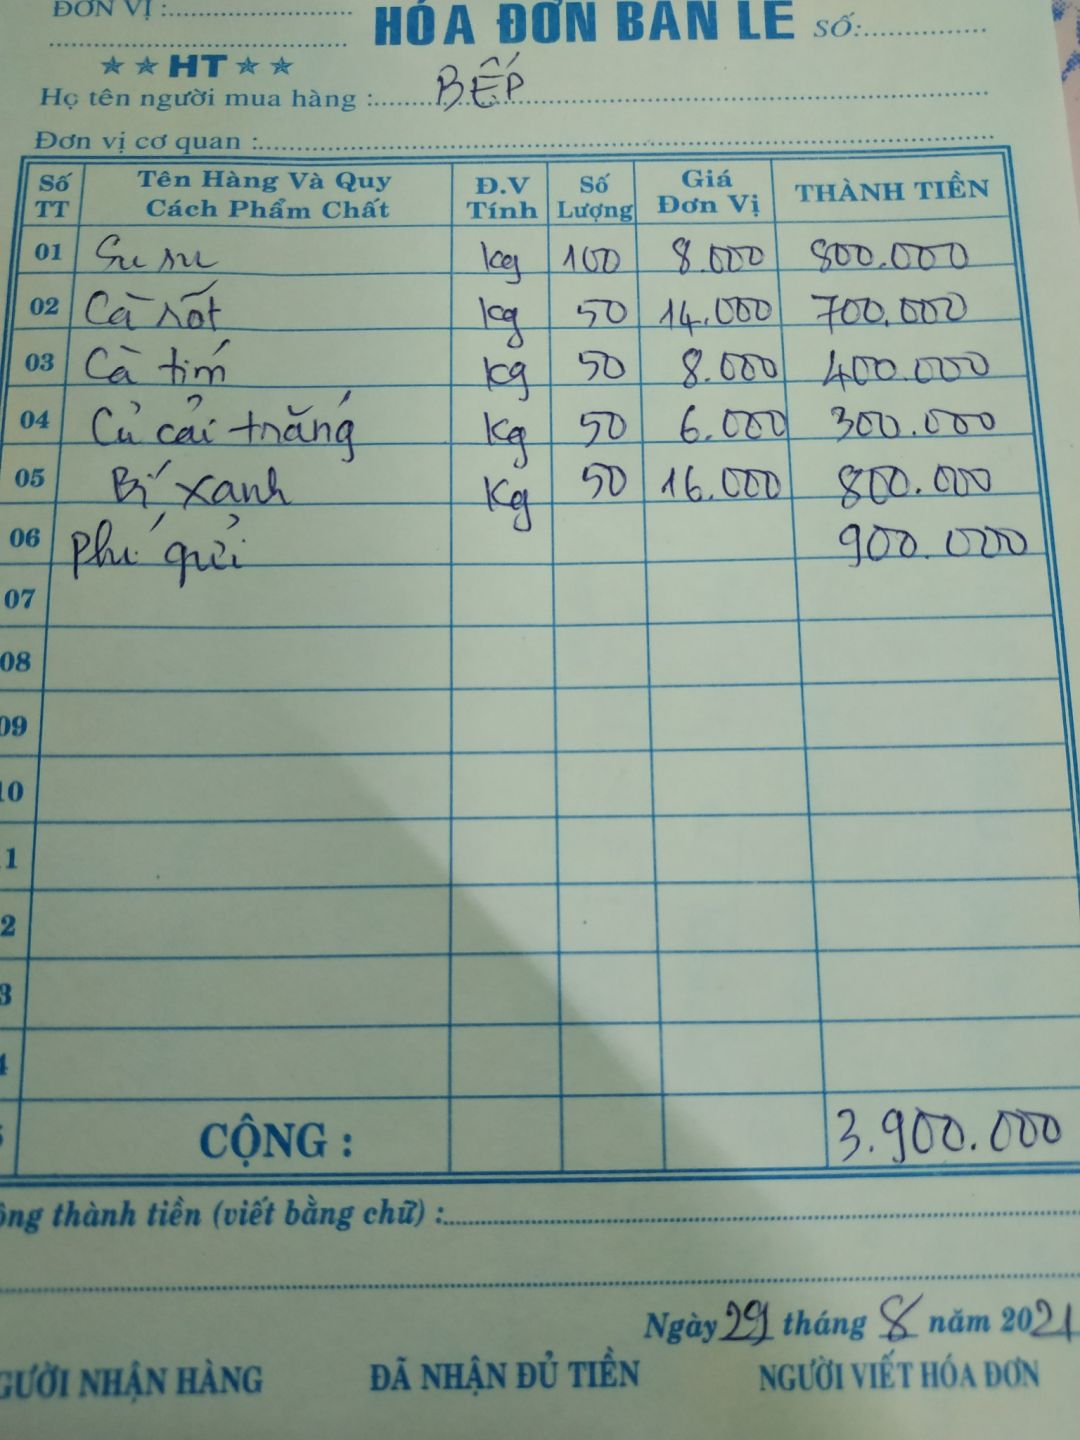 ĐƠN VỊ :
HÓA ĐƠN BÁN LẺ SỐ:
HT
Họ tên người mua hàng : BẾP
Đơn vị cơ quan :
Số TT Tên Hàng Và Quy Cách Phẩm Chất Đ.V Tính Số Lượng Giá Đơn Vị THÀNH TIỀN
01 Su su kg 100 8.000 800.000
02 Cà rốt kg 50 14.000 700.000
03 Cà tím kg 50 8.000 400.000
04 Củ cải trắng kg 50 6.000 300.000
05 Bí xanh kg 50 16.000 800.000
06 Phí gửi 900.000
07
08
09
10
1
2
3
4
CỘNG : 3.900.000
ông thành tiền (viết bằng chữ) :
Ngày 29 tháng 8 năm 2021
GƯỜI NHẬN HÀNG ĐÃ NHẬN ĐỦ TIỀN NGƯỜI VIẾT HÓA ĐƠN